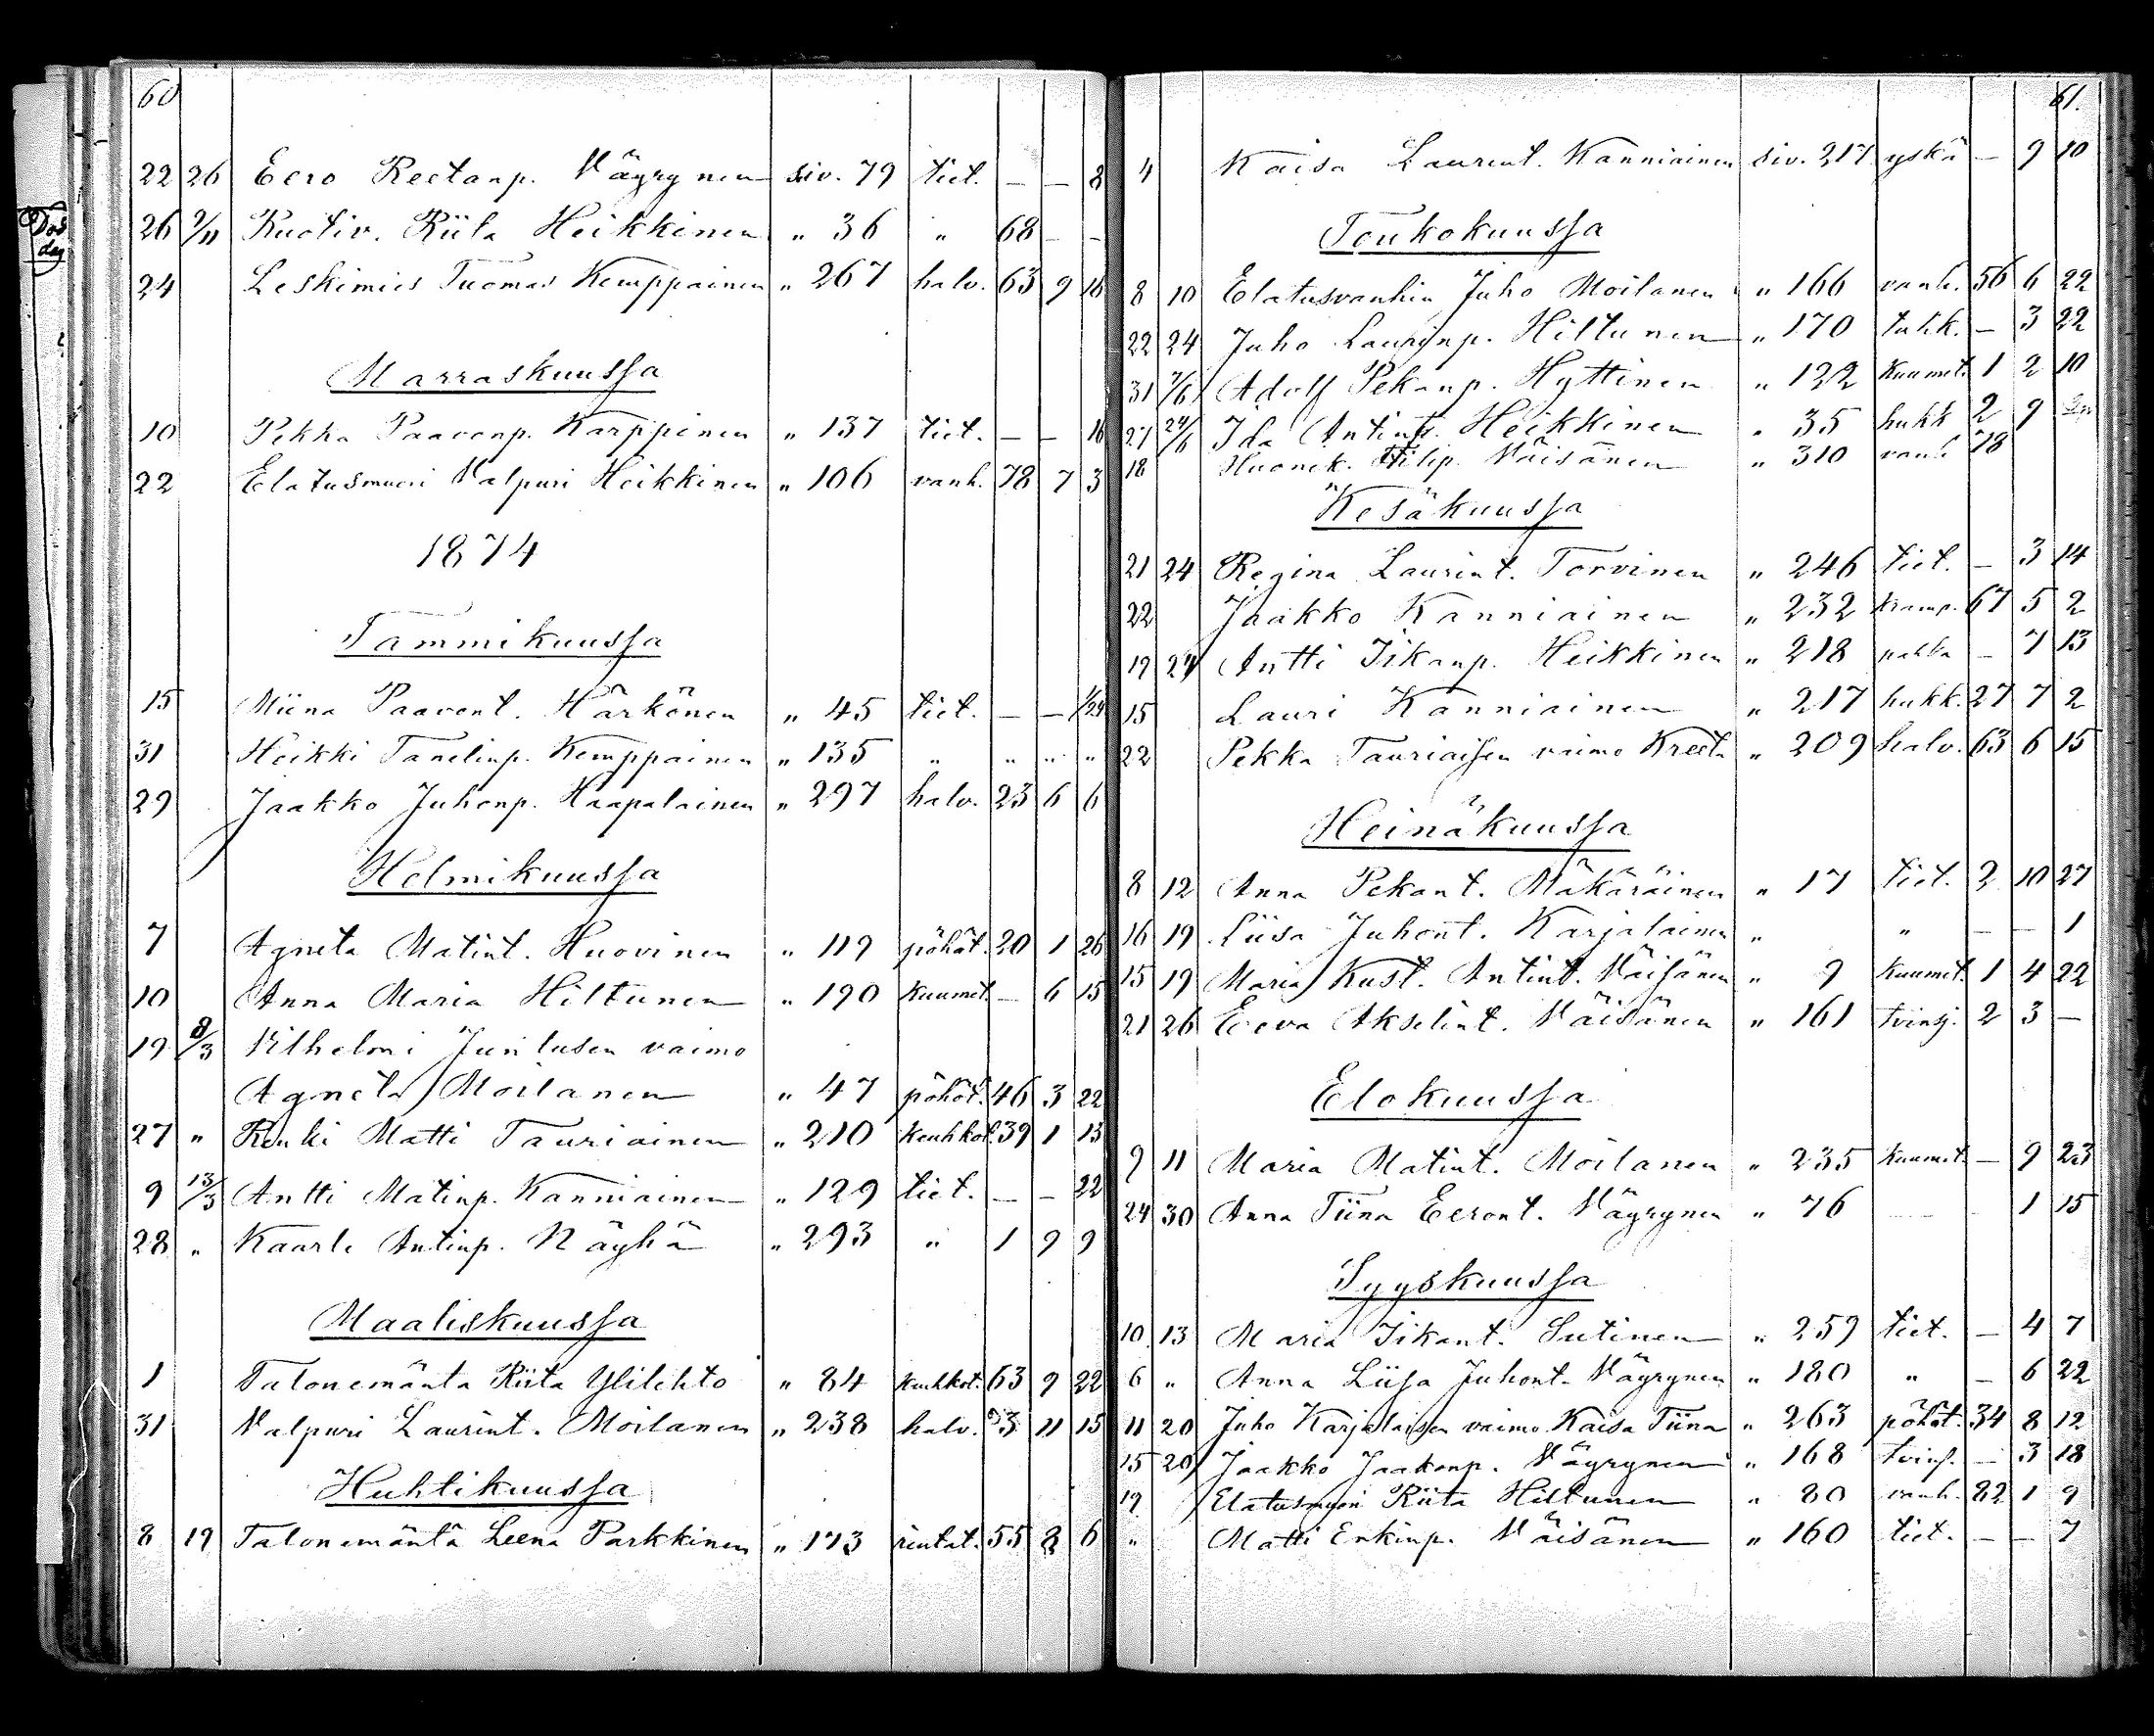 60
22 26 Eero Reetanp. Väyrynen siv. 79 tiet. — — 8
26 2/11 Ruotiv. Riita Heikkinen " 36 " 68 — —
24 Leskimies Tuomas Kemppainen " 267 halv. 63 9 16
Marraskuussa
10 Pekka Paavonp. Karppinen " 137 tiet. — — 16
22 Elatusmuori Valpuri Heikkinen " 106 vanh. 78 7 3
1874
Tammikuussa
15 Miina Paavont. Härkönen " 45 tiet. — — 1/24
31 Heikki Tanelinp. Kemppainen " 135 " " " "
29 Jaakko Juhonp. Haapalainen " 297 halv. 23 6 6
Helmikuussa
7 Agneta Matint. Huovinen " 119 pöhöt. 20 1 26
10 Anna Maria Hiltunen " 190 kuumet. — 6 15
19 8/3 Vilhelmi Juntusen vaimo
Agneta Moilanen " 47 pöhöt. 46 3 22
27 " Renki Matti Tauriainen " 210 keuhkot. 39 1 13
9 13/3 Antti Matinp. Kanniainen " 129 tiet. — — 22
28 " Kaarle Antinp. Näyhä " 293 " 1 9 9
Maaliskuussa
1 Talonemäntä Riita Ylilehto " 84 keuhkot. 63 9 22
31 Valpuri Laurint. Moilanen " 238 halv. 11 15
Huhtikuussa
8 19 Talonemäntä Leena Parkkinen " 173 rintat. 55 8 6
61.
4 Kaisa Laurint. Kanniainen siv. 217 yskä — 9 10
Toukokuussa
8 10 Elatusvanhin Juho Moilanen " 166 vanh. 56 6 22
22 24 Juho Laurinp. Hiltunen " 170 tukk. — 3 22
31 7/6 Adolf Pekanp. Hyttinen " 122 kuumet. 1 2 10
27 24/6 Ida Antint. Heikkinen " 35 hukk 2 9
18 Huonek. Filip. Väisänen " 310 vanh 78
Kesäkuussa
21 24 Regina Laurint. Torvinen " 246 tiet. — 3 14
22 Jaakko Kanniainen " 232 kramp. 67 5 2
19 24 Antti Iikanp. Heikkinen " 218 — 7 13
15 Lauri Kanniainen " 217 hukk. 27 7 2
22 Pekka Tauriaisen vaimo Kreeta " 209 halv. 63 6 15
Heinäkuussa
8 12 Anna Pekant. Mäkäräinen " 17 tiet. 2 10 27
16 19 Liisa Juhont. Karjalainen " " — — 1
15 19 Maria Kust. Antint. Väisänen " 9 kuumet. 1 4 22
21 26 Eeva Akselint. Väisänen " 161 tvinsj. 2 3 —
Elokuussa
9 11 Maria Matint. Moilanen " 235 kuumet. — 9 23
24 30 Anna Tiina Eeront. Väyrynen " 76 1 15
Syyskuussa
10 13 Maria Iikant. Sutinen " 259 tiet. — 4 7
6 " Anna Liisa Juhont. Väyrynen " 180 " — 6 22
11 20 Juho Karjalaisen vaimo Kaisa Tiina " 263 pöhöt. 34 8 12
15 20 Jaakko Jaakonp. Väyrynen " 168 tvins. — 3 18
19 Elatusmuori Riita Hiltunen " 80 vanh. 82 1 9
" Matti Erkinp. Väisänen " 160 tiet. — — 7